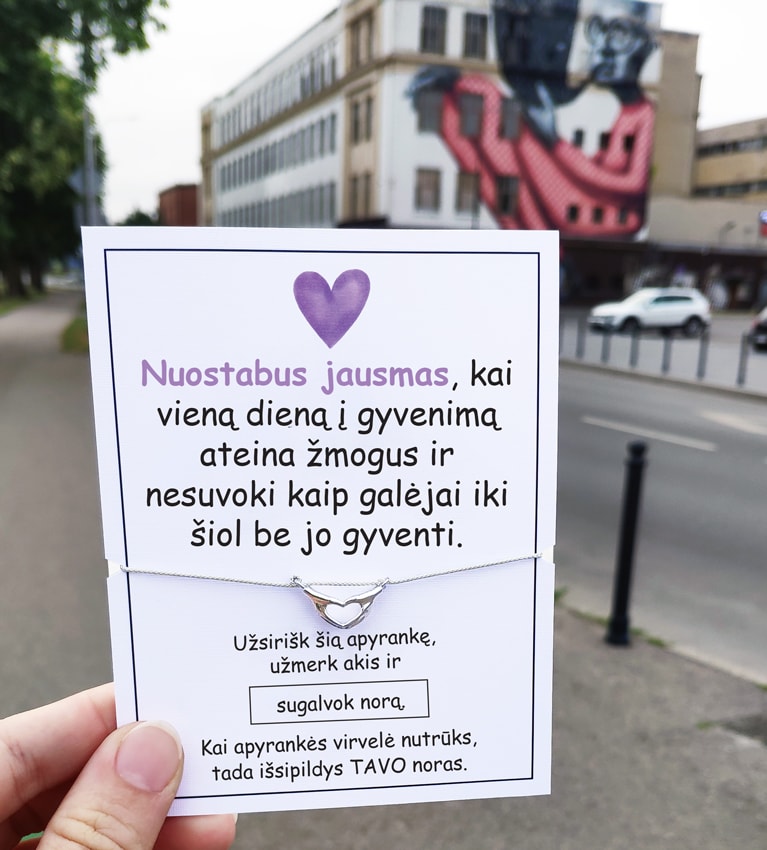 Nuostabus jausmas, kai
vieną dieną į gyvenimą
ateina žmogus ir
nesuvoki kaip galėjai iki
šiol be jo gyventi.
Užsirišk šią apyrankę,
užmerk akis ir
sugalvok norą
Kai apyrankės virvelė nutrūks,
tada išsipildys TAVO noras.